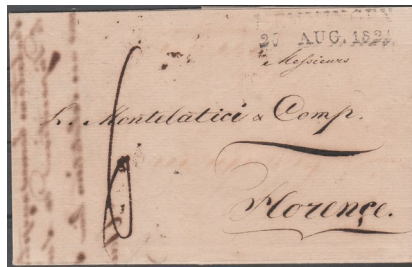 20 AUG. 182
Messieurs
L. Montelatici & Comp.
6
Florence.